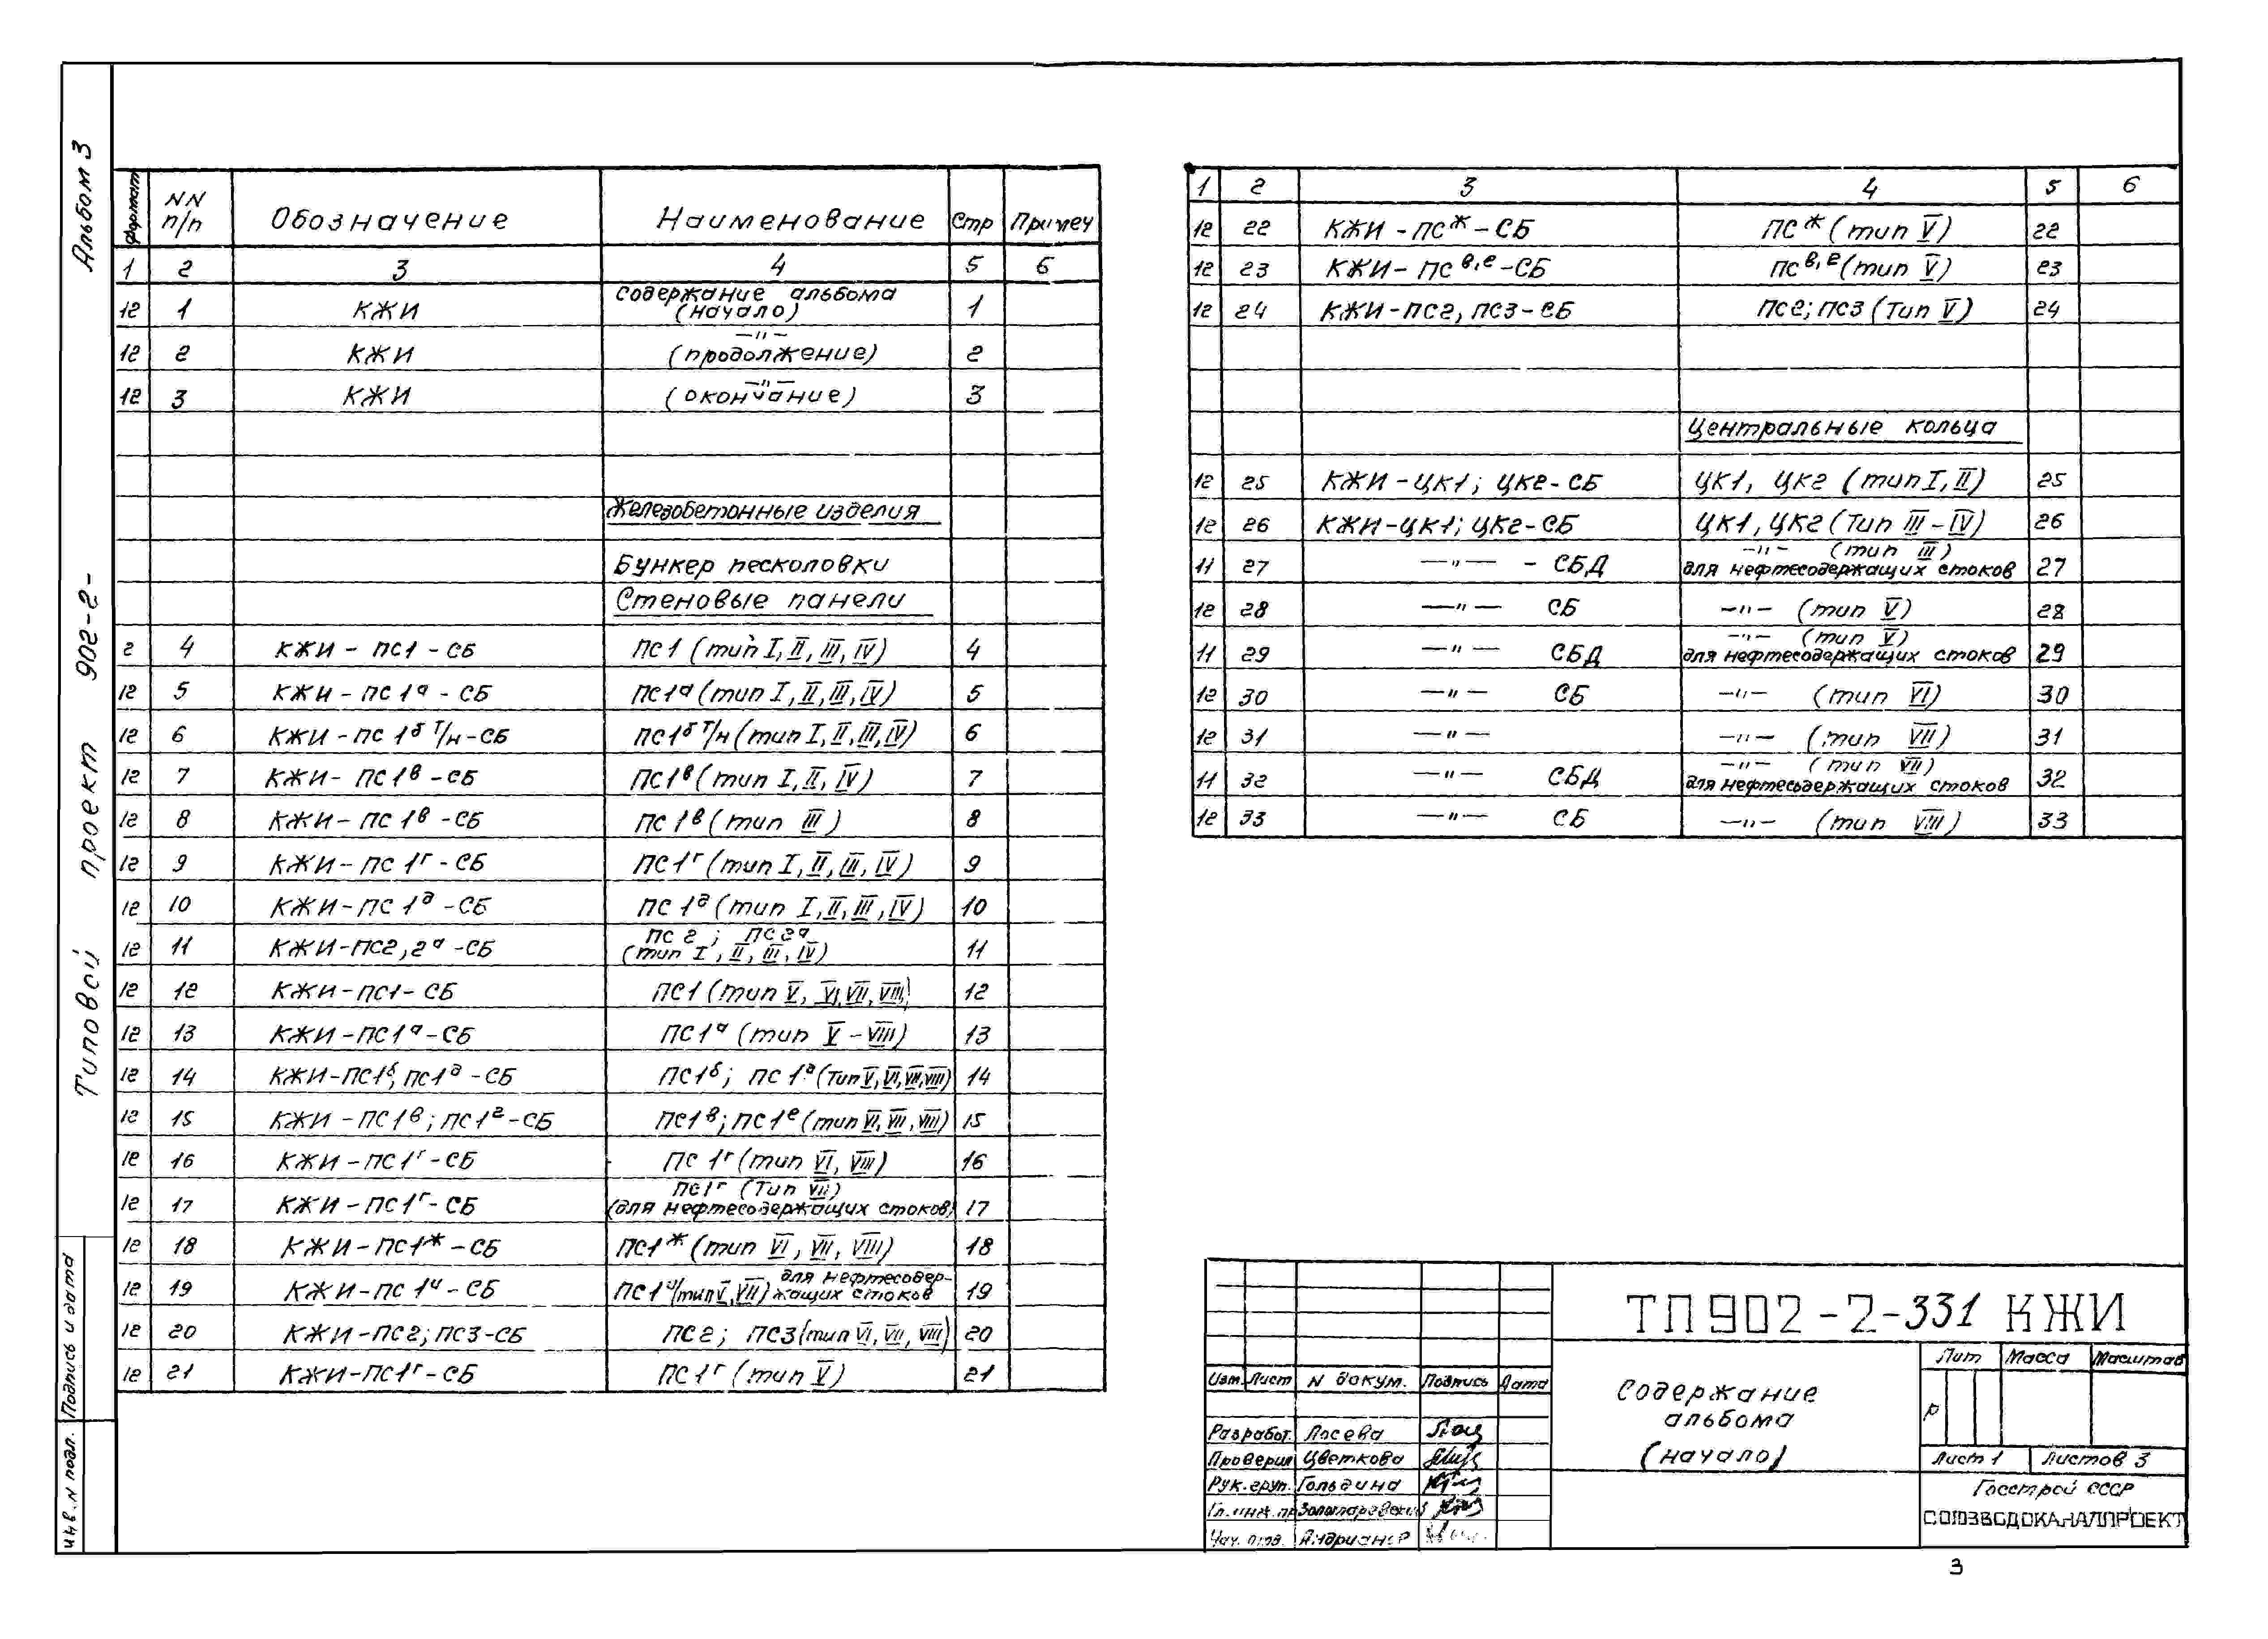 Альбом 3
Типовой проект 902-2-
Подпись и дата
Инв. N подл.
Формат NN п/п Обозначение Наименование Стр Примеч
1 2 3 4 5 6
12 1 КЖИ Содержание альбома (начало) 1
12 2 КЖИ —"— (продолжение) 2
12 3 КЖИ —"— (окончание) 3
Железобетонные изделия
Бункер песколовки
Стеновые панели
2 4 КЖИ - ПС1 - СБ ПС1 (тип I, II, III, IV) 4
12 5 КЖИ - ПС 1а - СБ ПС1а (тип I, II, III, IV) 5
12 6 КЖИ - ПС 1б Т/Н - СБ ПС1б Т/Н (тип I, II, III, IV) 6
12 7 КЖИ - ПС1в - СБ ПС1в (тип I, II, IV) 7
12 8 КЖИ - ПС 1в - СБ ПС 1в (тип III) 8
12 9 КЖИ - ПС 1г - СБ ПС1г (тип I, II, III, IV) 9
12 10 КЖИ - ПС 1д - СБ ПС 1д (тип I, II, III, IV) 10
12 11 КЖИ - ПС2, 2а - СБ ПС 2; ПС2а (тип I, II, III, IV) 11
12 12 КЖИ - ПС1 - СБ ПС1 (тип V, VI, VII, VIII) 12
12 13 КЖИ - ПС1а - СБ ПС1а (тип V - VIII) 13
12 14 КЖИ - ПС1б, ПС1д - СБ ПС1б; ПС 1д (Тип V, VI, VII, VIII) 14
12 15 КЖИ - ПС1в; ПС1е - СБ ПС1в; ПС1е (тип VI, VII, VIII) 15
12 16 КЖИ - ПС1г - СБ ПС 1г (тип VI, VIII) 16
12 17 КЖИ - ПС1г - СБ ПС1г (Тип VII) (для нефтесодержащих стоков) 17
12 18 КЖИ - ПС1ж - СБ ПС1ж (тип VI, VII, VIII) 18
12 19 КЖИ - ПС 1и - СБ ПС1и (тип V, VII) для нефтесодержащих стоков 19
12 20 КЖИ - ПС2; ПС3 - СБ ПС2; ПС3 (тип VI, VII, VIII) 20
12 21 КЖИ - ПС1г - СБ ПС 1г (тип V) 21
1 2 3 4 5 6
12 22 КЖИ - ПСж - СБ ПСж (тип V) 22
12 23 КЖИ - ПСв,е - СБ ПСв,е (тип V) 23
12 24 КЖИ - ПС2, ПС3 - СБ ПС2; ПС3 (Тип V) 24
Центральные кольца
12 25 КЖИ - ЦК1; ЦК2 - СБ ЦК1, ЦК2 (тип I, II) 25
12 26 КЖИ - ЦК1; ЦК2 - СБ ЦК1, ЦК2 (Тип III - IV) 26
11 27 —"— - СБД —"— (тип III) для нефтесодержащих стоков 27
12 28 —"— СБ —"— (тип V) 28
11 29 —"— СБД —"— (тип V) для нефтесодержащих стоков 29
12 30 —"— СБ —"— (тип VI) 30
12 31 —"— —"— (тип VII) 31
11 32 —"— СБД —"— (тип VII) для нефтесодержащих стоков 32
12 33 —"— СБ —"— (тип VIII) 33
ТП 902-2-331 КЖИ
Изм. Лист N докум. Подпись Дата
Разработ. Лосева
Проверил Цветкова
Рук. груп. Гольдина
Гл. инж. пр.
Нач. отд.
Содержание
альбома
(начало)
Лит Масса Масштаб
Р
Лист 1 Листов 3
Госстрой СССР
СОЮЗВОДОКАНАЛПРОЕКТ
3